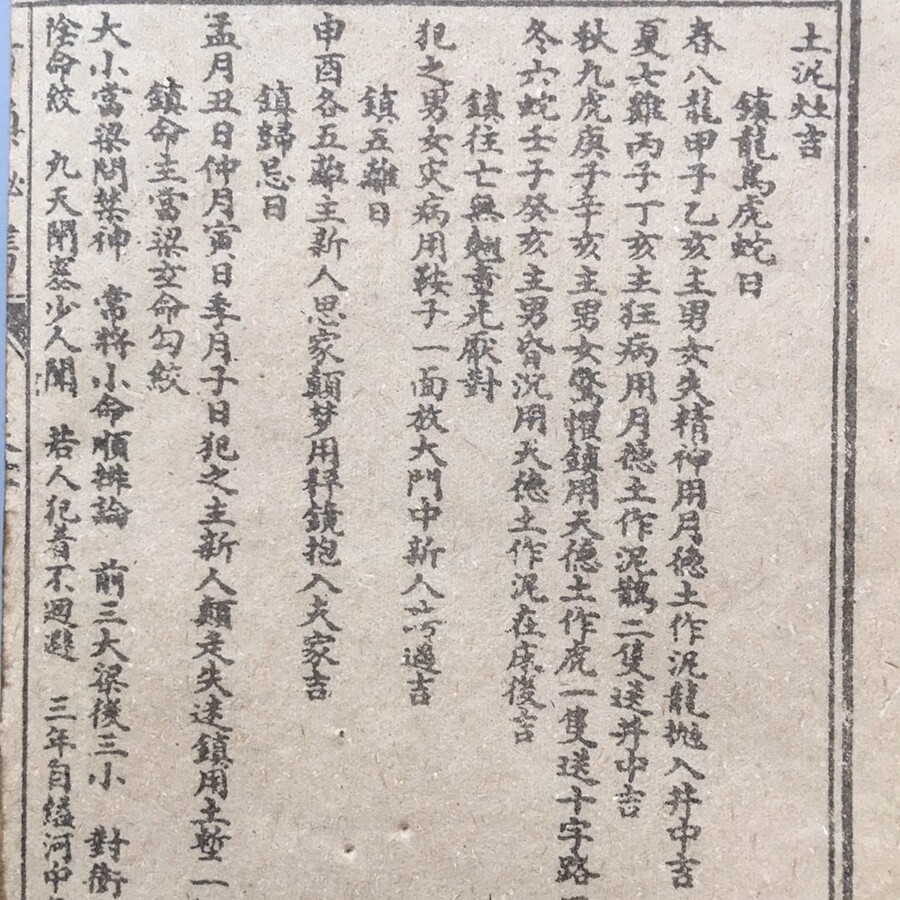 土泥灶吉
鎮龍馬虎蛇日
春八龍甲子乙亥主男女失精神用月德土作泥龍抛入井中吉
夏七雞丙子丁亥主狂病用月德土作泥鵲二隻送井中吉
秋九虎庚子辛亥主男女驚懼鎮用天德土作虎一隻送十字路
冬六蛇壬子癸亥主男昏沉用天德土作泥在床後吉
鎮往亡無翹章光厭對
犯之男女灾病用鞍子一面放大門中新人過吉
鎮五離日
申酉各五離主新人思家顛梦用秤鏡抱入夫家吉
鎮歸忌日
孟月丑日仲月寅日季月子日犯之主新人顛走失迷鎮用土墼一
鎮命主當梁玄命勾絞
大小當梁問禁神 常將小命順排論 前三大梁後三小 對衝
陰命絞 九天閉塞少人聞 若人犯着不迴避 三年自縊河中